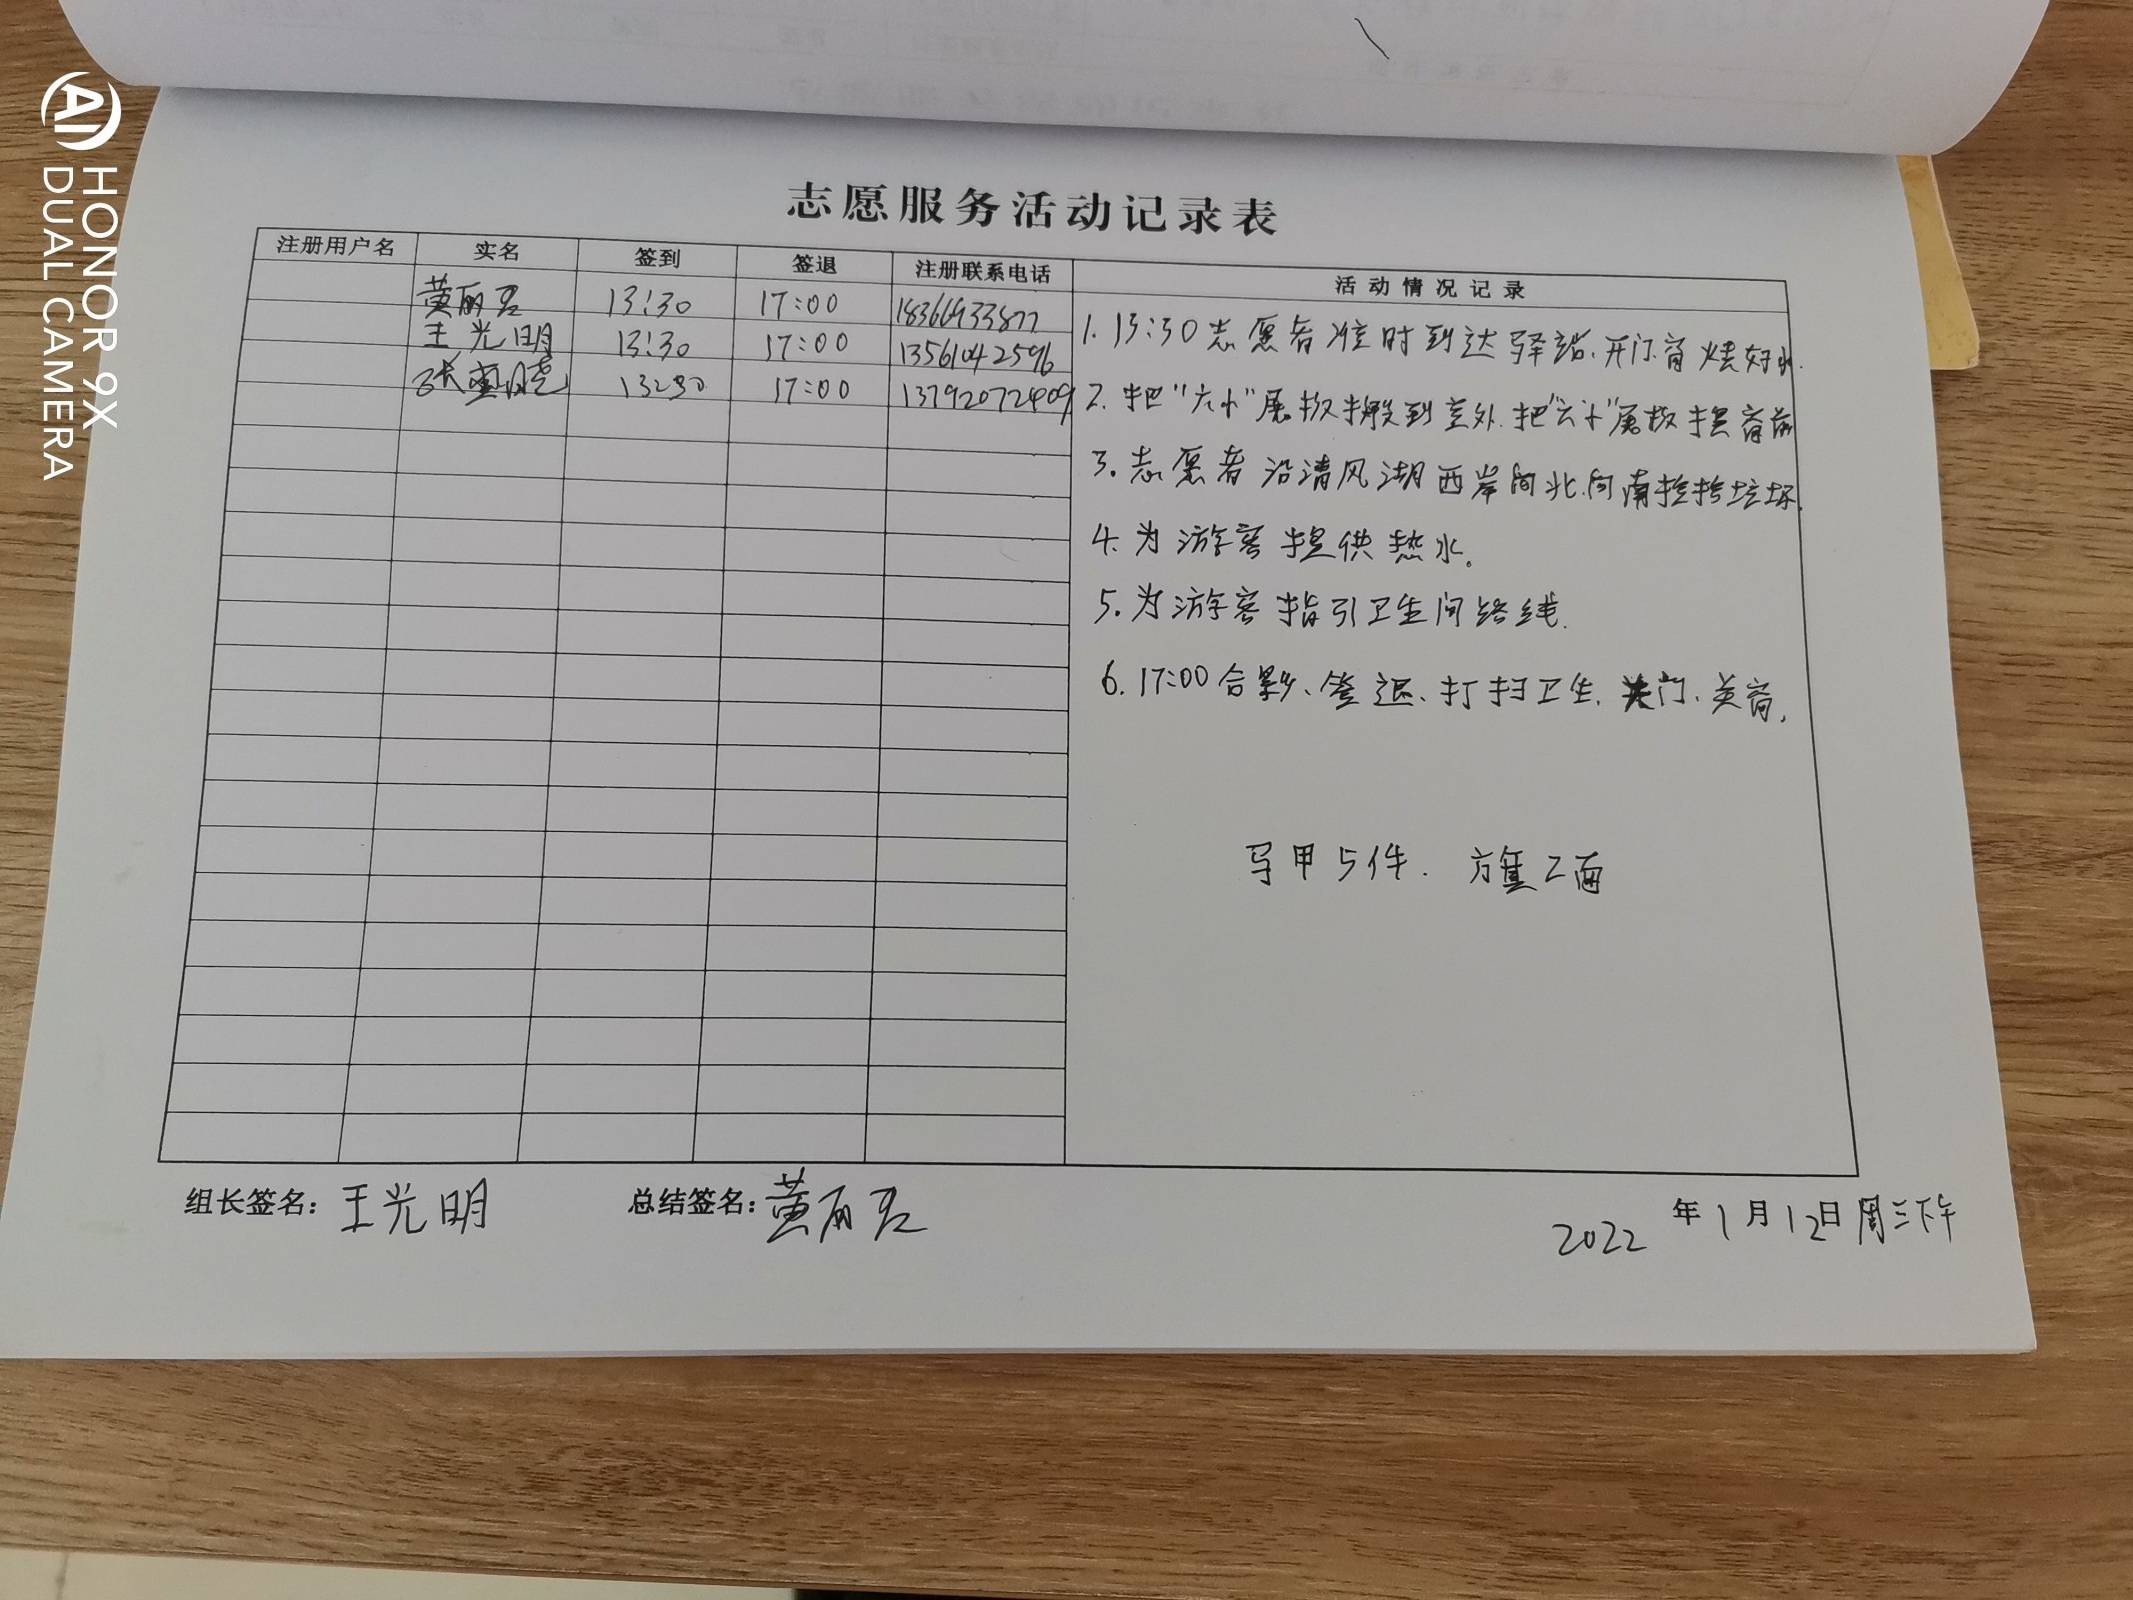 HONOR 9X
DUAL CAMERA
志愿服务活动记录表
注册用户名 实名 签到 签退 注册联系电话 活动情况记录
黄丽君 13:30 17:00 18366933877
王光明 13:30 17:00 13561042596
张 13:30 17:00 13792072409
1. 13:30志愿者准时到达驿站.开门窗烧好水.
2. 把"六小"展板搬到室外.把"六小"展板摆
3. 志愿者沿清风湖西岸向北.向南捡拾垃圾.
4. 为游客提供热水。
5. 为游客指引卫生间路线.
6. 17:00合影、签退、打扫卫生.关门.关窗.
马甲5件. 旗2面
组长签名:王光明 总结签名:黄丽君 2022年1月12日周三下午